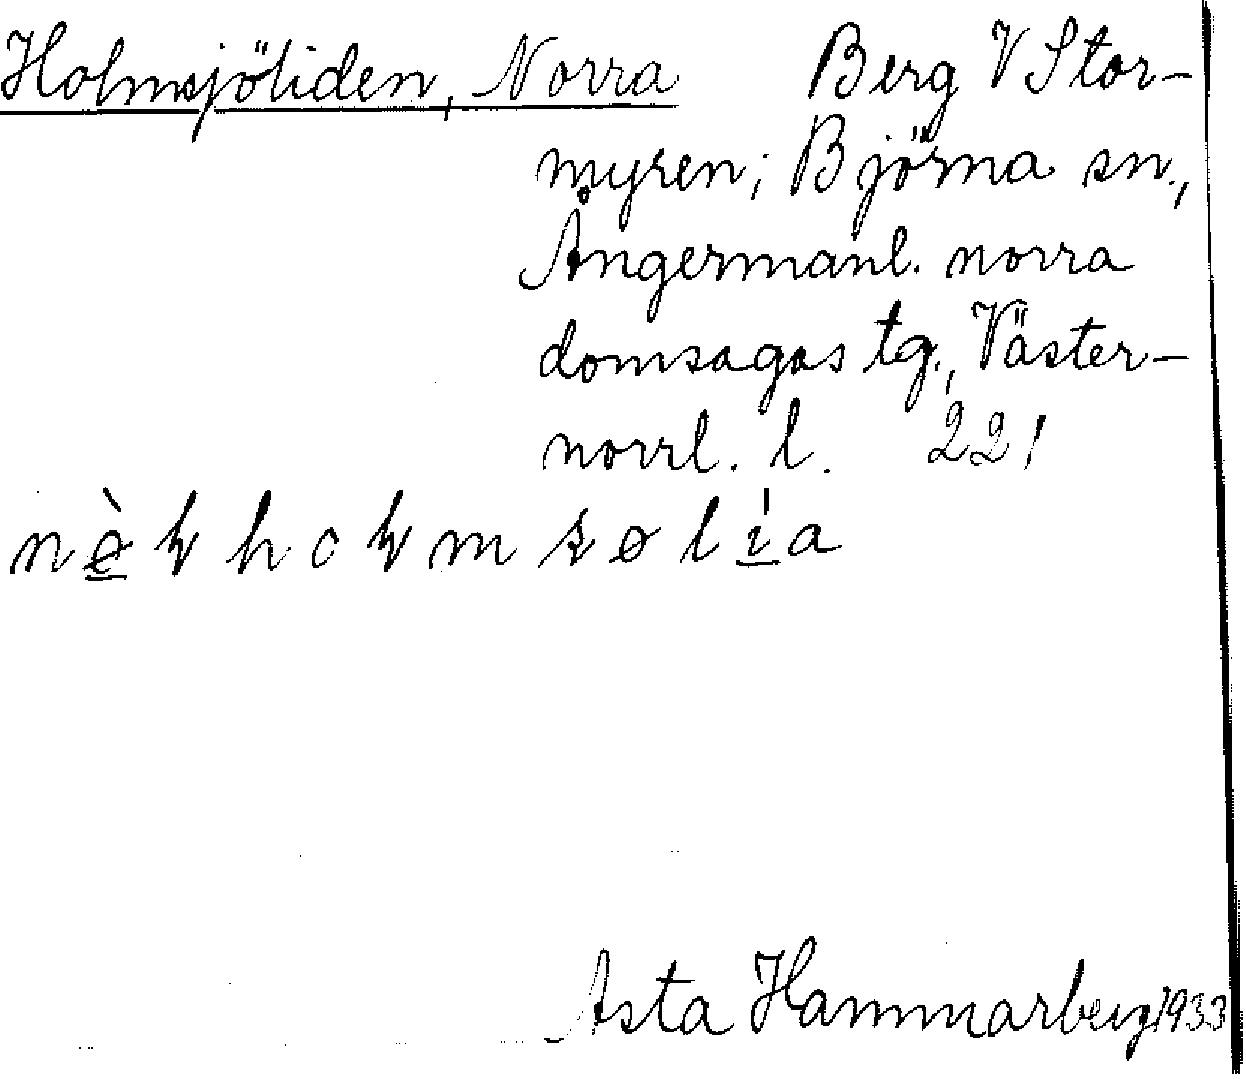 Holmsjöliden, Norra Berg V Stor-
myren; Björna sn.,
Ångermanl. norra
domsagas tg., Väster-
norrl. l. 221
Asta Hammarberg 1933